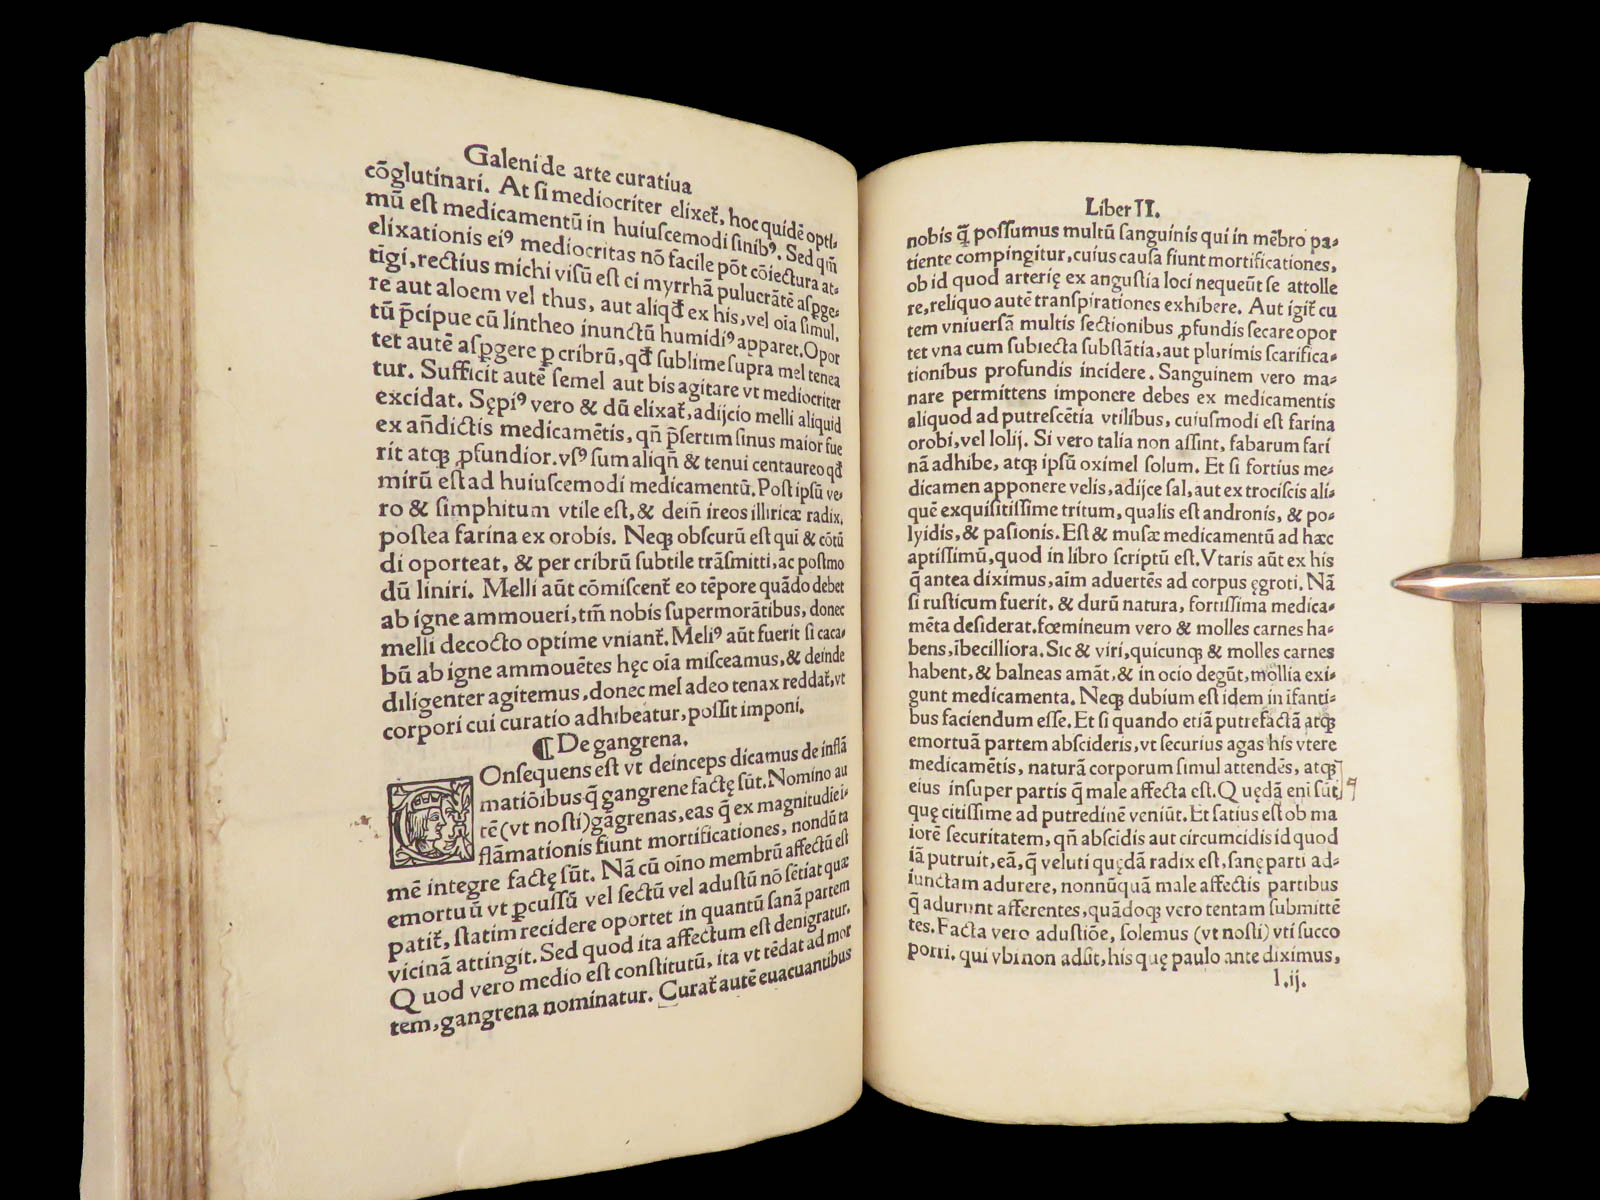 Galeni de arte curatiua
cōglutinari. At ſi mediocriter elixet᷑, hoc quidē opti-
mū eſt medicamentū in huiuſcemodi ſinibꝰ. Sed qm̄
elixationis eiꝰ mediocritas nō facile pōt cōiectura at-
tīgi, rectius michi viſū eſt ci myrrhā pulucrātē aſꝑge-
re aut aloem vel thus, aut aliqđ ex his, vel oīa ſimul,
tū p̄cipue cū lintheo inunctū humidiꝰ apparet. Opor
tet autē aſꝑgere ꝑ cribrū, qđ ſublime ſupra mel tenea
tur. Sufficit autē ſemel aut bis agitare vt mediocriter
excidat. Sępiꝰ vero & dū elixat᷑, adijcio melli aliquid
ex an̄dictis medicamētis, qn̄ p̄ſertim ſinus maior fue
rit atqꝫ ꝓfundior. vſꝰ ſum aliqn̄ & tenui centaureo qđ
mirū eſt ad huiuſcemodi medicamentū. Poſt ipſū ve-
ro & ſimphitum vtile eſt, & dein̄ ireos illiricæ radix,
poſtea farina ex orobis. Neqꝫ obſcurū eſt qui & cōtū
di oporteat, & per cribrū ſubtile trāſmitti, ac poſtmo
dū liniri. Melli aūt cōmiſcent᷑ eo tēpore quādo debet
ab igne ammoueri, tm̄ nobis ſupermorātibus, donec
melli decocto optime vniant᷑. Meliꝰ aūt fuerit ſi caca-
bū ab igne ammouētes hęc oīa miſceamus, & deinde
diligenter agitemus, donec mel adeo tenax reddat᷑, vt
corpori cui curatio adhibeatur, poſſit imponi.
¶ De gangrena.
COnſequens eſt vt deinceps dicamus de inflā
matiōibus q̄ gangrene factę ſūt. Nomino au
tē (vt noſti) gāgrenas, eas q̄ ex magnitudie i-
flāmationis fiunt mortificationes, nondū ta
mē integre factę ſūt. Nā cū oīno membrū affectū eſt
emortuū vt ꝑcuſſū vel ſectū vel aduſtū nō ſētiat quæ
patit᷑, ſtatim recidere oportet in quantū ſanā partem
vicinā attingit. Sed quod ita affectum eſt denigratur.
Quod vero medio eſt conſtitutū, ita vt tēdat ad mor
tem, gangrena nominatur. Curat᷑ autē euacuantibus
Liber II.
nobis q̄ poſſumus multū ſanguinis qui in mēbro pa-
tiente compingitur, cuius cauſa fiunt mortificationes,
ob id quod arterię ex anguſtia loci nequeūt ſe attolle
re, reliquo autē tranſpirationes exhibere. Aut igit᷑ cu
tem vniuerſā multis ſectionibus ꝓfundis ſecare opor
tet vna cum ſubiecta ſubſtātia, aut plurimis ſcarifica-
tionibus profundis incidere. Sanguinem vero ma-
nare permittens imponere debes ex medicamentis
aliquod ad putreſcētia vtilibus, cuiuſmodi eſt farina
orobi, vel lolij. Si vero talia non aſſint, fabarum fari
nā adhibe, atqꝫ ipſū oximel ſolum. Et ſi fortius me-
dicamen apponere velis, adijce ſal, aut ex trociſcis ali-
quē exquiſitiſſime tritum, qualis eſt andronis, & po-
lyidis, & paſionis. Eſt & muſæ medicamentū ad hæc
aptiſſimū, quod in libro ſcriptū eſt. Vtaris aūt ex his
q̄ antea diximus, aīm aduertēs ad corpus ęgroti. Nā
ſi ruſticum fuerit, & durū natura, fortiſſima medica-
mēta deſiderat. fœmineum vero & molles carnes ha-
bens, ībecilliora. Sic & viri, quicunqꝫ & molles carnes
habent, & balneas amāt, & in ocio degūt, mollia exi-
gunt medicamenta. Neqꝫ dubium eſt idem in īfanti-
bus faciendum eſſe. Et ſi quando etiā putrefactā atqꝫ
emortuā partem abſcideris, vt ſecurius agas his vtere
medicamētis, naturā corporum ſimul attendēs, atqꝫ
eius inſuper partis q̄ male affecta eſt. Quędā eni ſūt
quę citiſſime ad putredinē veniūt. Et ſatius eſt ob ma
iorē ſecuritatem, qn̄ abſcidis aut circumcidis id quod
iā putruit, eā, q̄ veluti quędā radix eſt, ſanę parti ad-
iunctam adurere, nonnūquā male affectis partibus
q̄ adurunt afferentes, quādoqꝫ vero tentam ſubmittē
tes. Facta vero aduſtiōe, ſolemus (vt noſti) vti ſucco
porri. qui vbi non adſit, his quę paulo ante diximus,
l.ij.